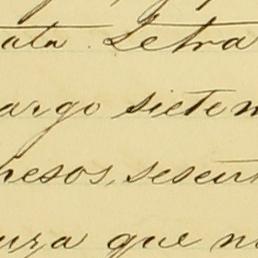 ata. Letra
argo siete m
pesos, sesent
uza que n